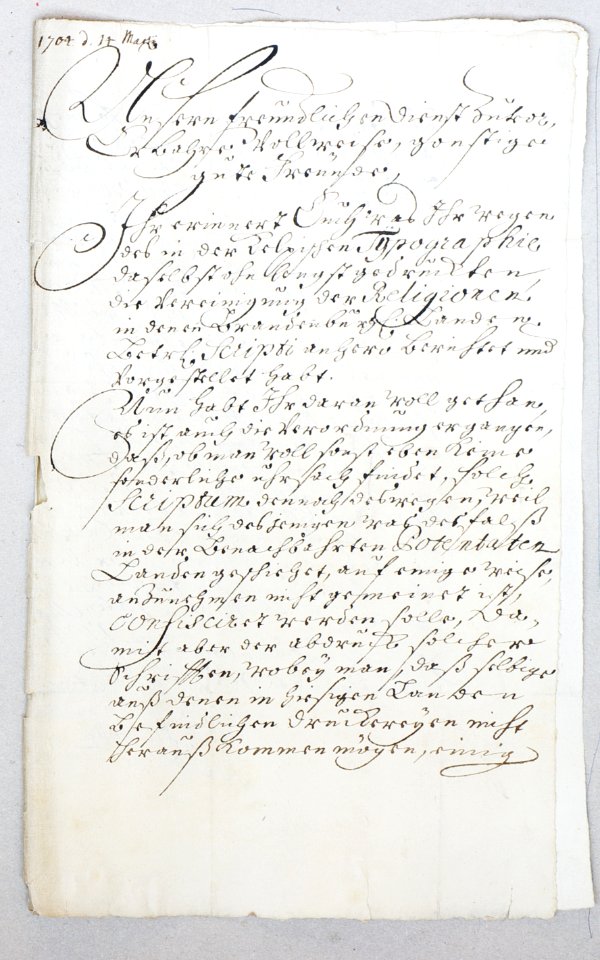 1704 d. 14 Martj
Unsern freundlichen dienst zuvor,
Erbahre Wollweise, gonstige
gute Freunde,
Ihr erinnert Euch, was Ihr wegen
des in der Typographie
daselbst ohnlängst gedruckten,
die Vereinigung der Religionen
in denen Brandenburg. Landen
Betr. Scripti anhero berichtet und
vorgestellet habt.
Nun habt Ihr daran woll gethan,
es ist auch die Verordnung ergangen,
daß, ob man woll sonst eben keine
sonderliche uhrsach findet, solch
Scriptum dennoch deswegen, weil
man sich desjenigen was desfalß
in der Benachbahrten Potentaten
Landen geschiehet, auf einige weise,
anzunehmen nicht gemeinet ist,
confisciret werden solle, Da-
mit aber der abdruck solcher
Schrifften, wobey man, daß selbige
auß denen in hiesigen Landen
befindlichen Druckereyen nicht
herauß kommen mögen, einig